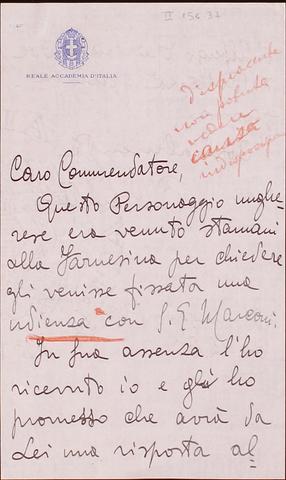 II 156 37
REALE ACCADEMIA D'ITALIA
dispiacente
non poterla
vedere
causa
indisposizione
Caro Commendatore,
Questo Personaggio unghe-
rese era venuto stamani
alla Farnesina per chiedere
gli venisse fissata una
udienza con S. E. Marconi.
In Sua assenza l'ho
ricevuto io e gli ho
promesso che avrà da
Lei una risposta al